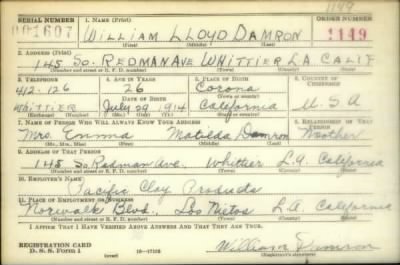 1149
SERIAL NUMBER 1. NAME (Print) ORDER NUMBER
001607 WILLIAM LLOYD DAMRON 1149
(First) (Middle) (Last)
2. ADDRESS (Print)
145 SO. REDMAN AVE WHITTIER LA CALIF
(Number and street or R. F. D. number) (Town) (County) (State)
3. TELEPHONE 4. AGE IN YEARS 5. PLACE OF BIRTH 6. COUNTRY OF CITIZENSHIP
412-126 26 Corona
DATE OF BIRTH
WHITTIER July 29 1914 California U.S.A
(Exchange) (Number) (Mo.) (Day) (Yr.) (State or country)
7. NAME OF PERSON WHO WILL ALWAYS KNOW YOUR ADDRESS 8. RELATIONSHIP OF THAT PERSON
Mrs. Emma Matilda Damron Mother
(Mr., Mrs., Miss) (First) (Middle) (Last)
9. ADDRESS OF THAT PERSON
145 So. Redman Ave. Whittier L.A. California
(Number and street or R. F. D. number) (Town) (County) (State)
10. EMPLOYER'S NAME
Pacific Clay Products
11. PLACE OF EMPLOYMENT OR BUSINESS
Norwalk Blvd. Los Nietos L.A. California
(Number and street or R. F. D. number) (Town) (County) (State)
I AFFIRM THAT I HAVE VERIFIED ABOVE ANSWERS AND THAT THEY ARE TRUE.
REGISTRATION CARD
D. S. S. Form 1 (over) William Damron
(Registrant's signature)